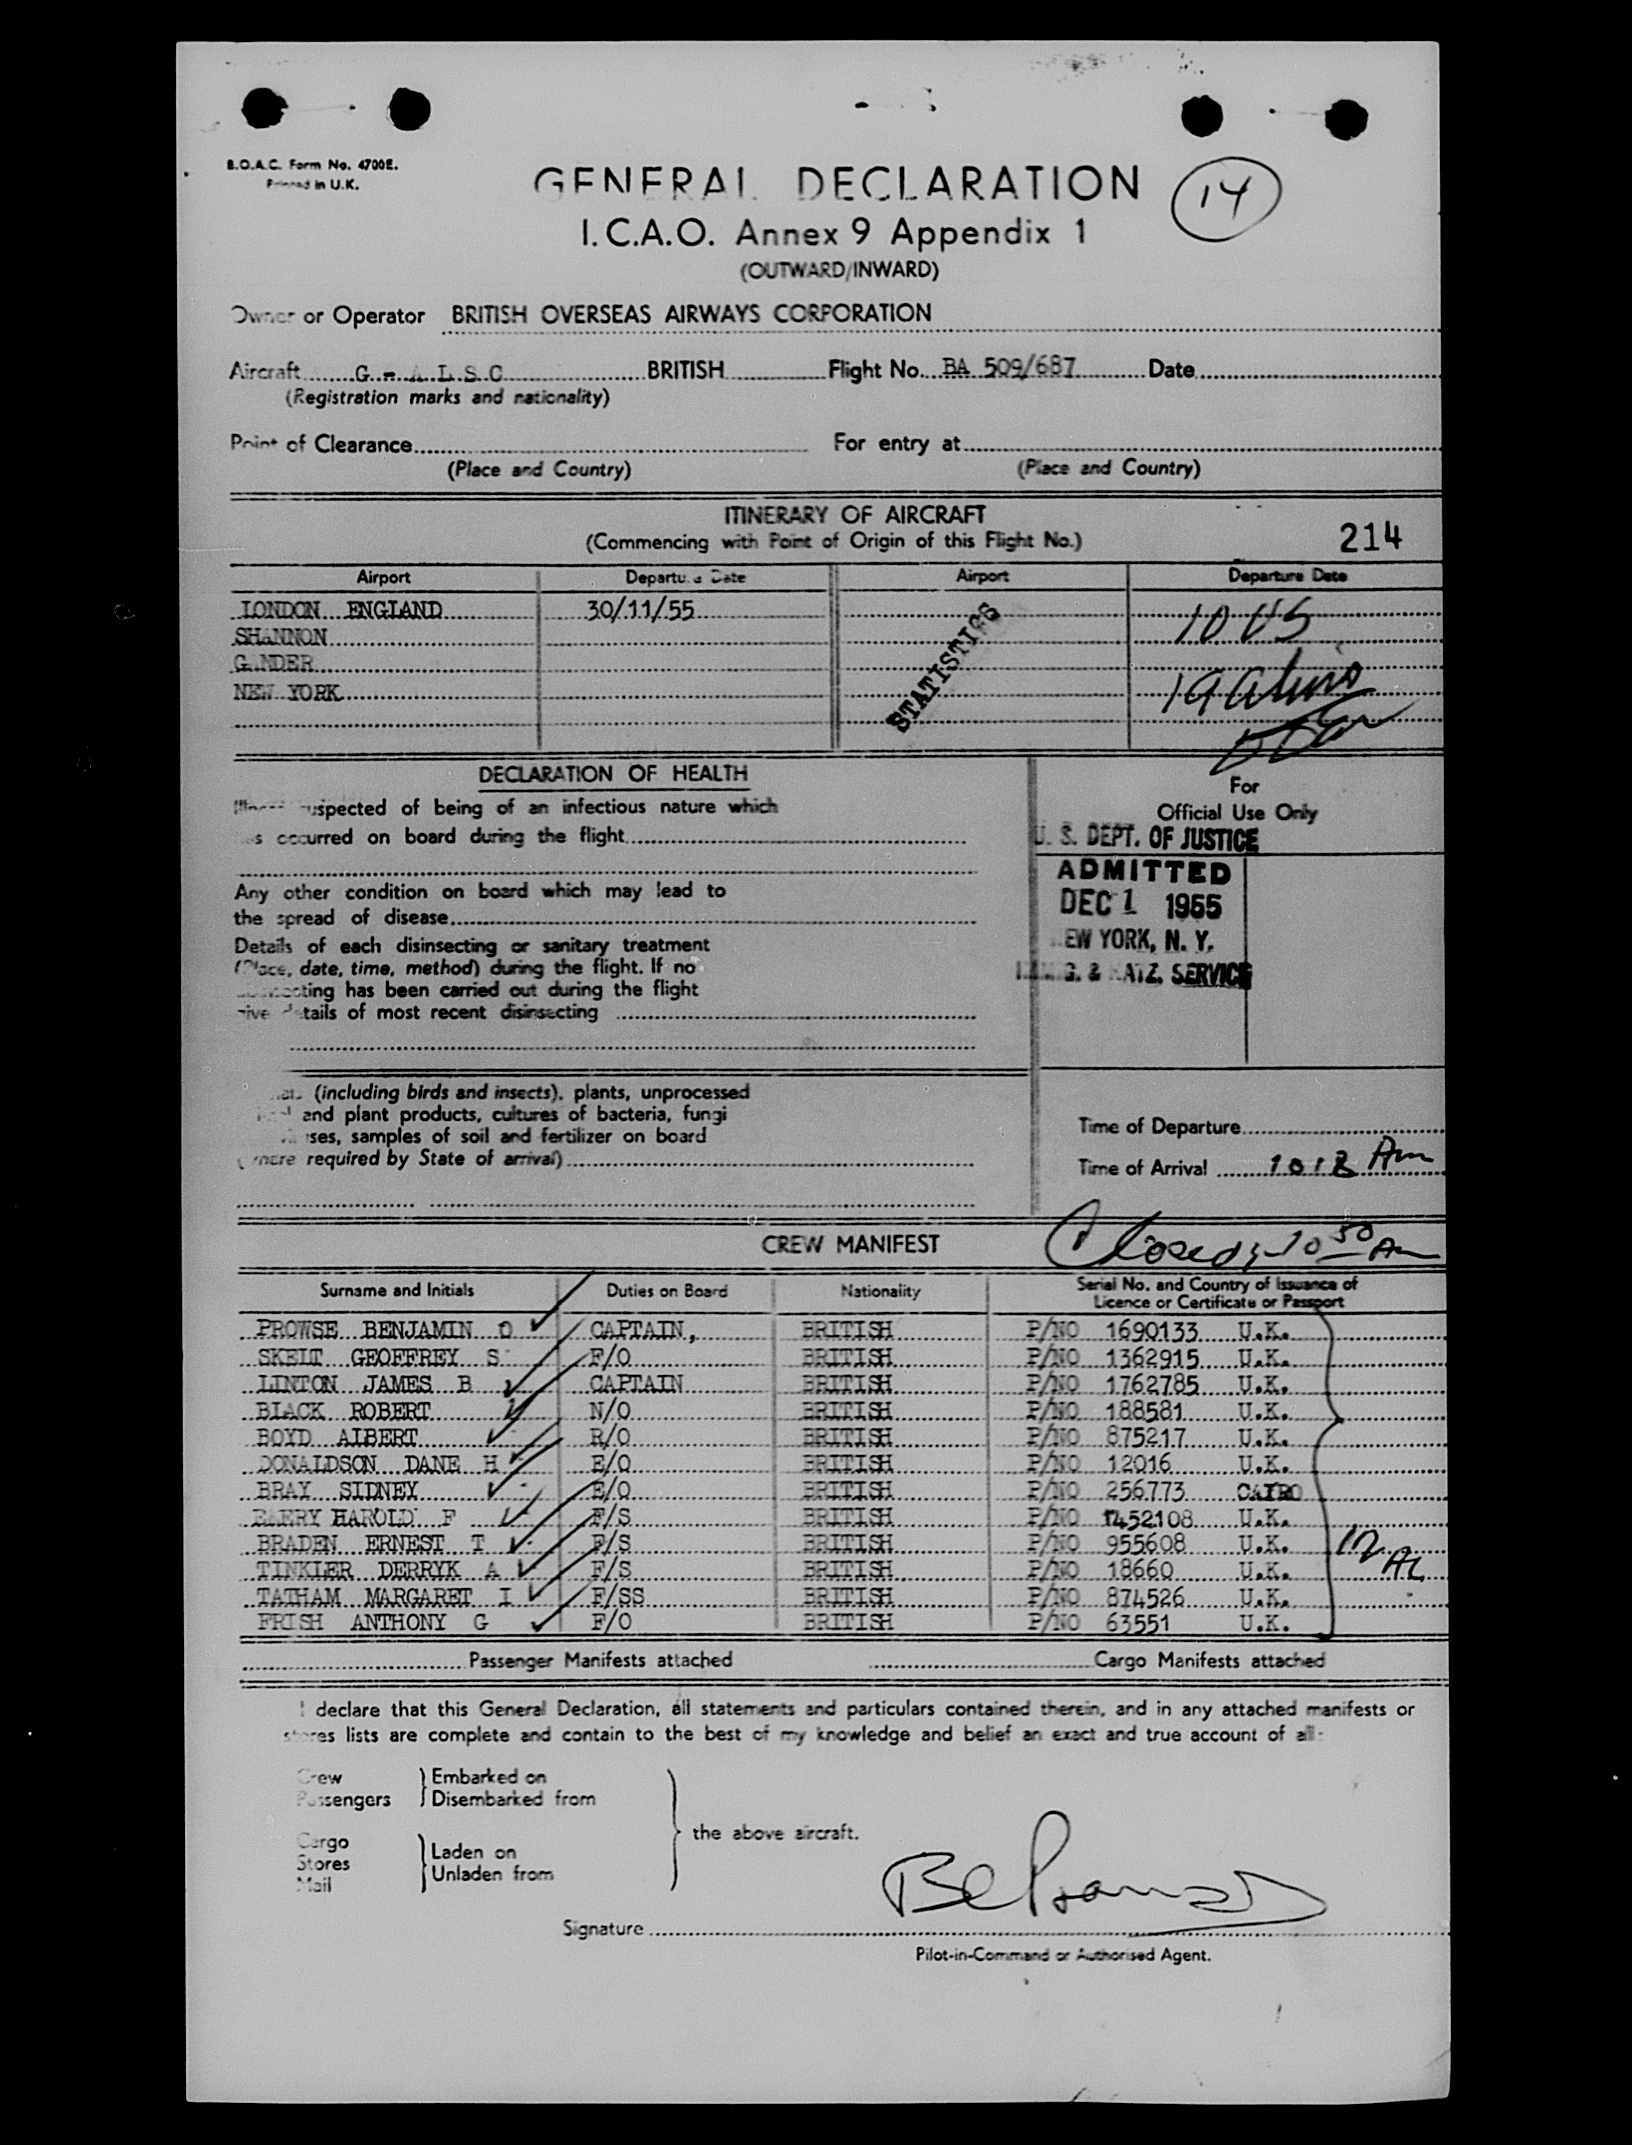 B.O.A.C. Form No. 4700E.
Printed in U.K.
GENERAL DECLARATION
14
I.C.A.O. Annex 9 Appendix 1
(OUTWARD/INWARD)
Owner or Operator BRITISH OVERSEAS AIRWAYS CORPORATION
Aircraft G - A L S C BRITISH Flight No. BA 509/687 Date
(Registration marks and nationality)
Point of Clearance For entry at
(Place and Country) (Place and Country)
ITINERARY OF AIRCRAFT
(Commencing with Point of Origin of this Flight No.) 214
Airport Departure Date Airport Departure Date
LONDON ENGLAND 30/11/55
SHANNON 10 US
GANDER
NEW YORK
STATISTICS
DECLARATION OF HEALTH
Illness suspected of being of an infectious nature which
has occurred on board during the flight
Any other condition on board which may lead to
the spread of disease
Details of each disinsecting or sanitary treatment
(Place, date, time, method) during the flight. If no
disinsecting has been carried out during the flight
give details of most recent disinsecting
For
Official Use Only
U. S. DEPT. OF JUSTICE
ADMITTED
DEC 1 1955
NEW YORK, N. Y.
IMMIG. & NATZ. SERVICE
(including birds and insects), plants, unprocessed
and plant products, cultures of bacteria, fungi
viruses, samples of soil and fertilizer on board
(where required by State of arrival)
Time of Departure
Time of Arrival 1012 Am
CREW MANIFEST
Closed 10 50 Am
Surname and Initials Duties on Board Nationality Serial No. and Country of Issuance of
Licence or Certificate or Passport
PROWSE BENJAMIN O CAPTAIN, BRITISH P/NO 1690133 U.K.
SKELT GEOFFREY S F/O BRITISH P/NO 1362915 U.K.
LINTON JAMES B CAPTAIN BRITISH P/NO 1762785 U.K.
BLACK ROBERT N/O BRITISH P/NO 188581 U.K.
BOYD ALBERT R/O BRITISH P/NO 875217 U.K.
DONALDSON DANE H E/O BRITISH P/NO 12016 U.K.
BRAY SIDNEY E/O BRITISH P/NO 256773 CAIRO
HAROLD F F/S BRITISH P/NO 1452108 U.K.
BRADEN ERNEST T F/S BRITISH P/NO 955608 U.K.
TINKLER DERRYK A F/S BRITISH P/NO 18660 U.K.
TATHAM MARGARET I F/SS BRITISH P/NO 874526 U.K.
FRISH ANTHONY G F/O BRITISH P/NO 63551 U.K.
Passenger Manifests attached Cargo Manifests attached
I declare that this General Declaration, all statements and particulars contained therein, and in any attached manifests or
stores lists are complete and contain to the best of my knowledge and belief an exact and true account of all:
Crew Embarked on
Passengers Disembarked from
the above aircraft.
Cargo
Stores Laden on
Mail Unladen from
Signature
Pilot-in-Command or Authorised Agent.